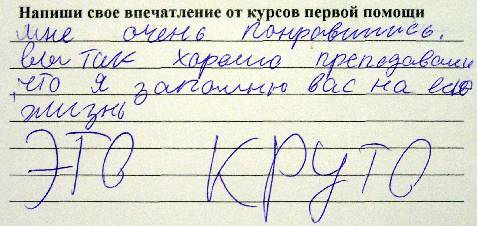 Напиши свое впечатление от курсов первой помощи
мне очень понравились.
вы так хорошо преподавали
что я запомню вас на всю
жизнь
ЭТО КРУТО